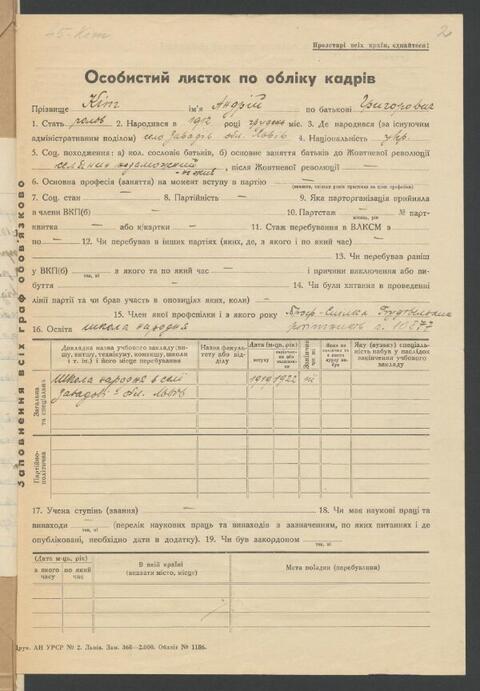 45-Кет
2
Пролетарі всіх країн, єднайтеся!
Особистий листок по обліку кадрів
Прізвище Кіт ім'я Андрій по батькові Григорович
1. Стать 2. Народився в 1912 році грудень міс. 3. Де народився (за існуючим
адміністративним поділом) село Завадів обл. Львів 4. Національність укр.
5. Соц. походження: а) кол. сословіє батьків, б) основне заняття батьків до Жовтневої революції
селянин , після Жовтневої революції —
6. Основна професія (заняття) на момент вступу в партію —
7. Соц. стан — 8. Партійність — 9. Яка парторганізація прийняла
в члени ВКП(б) — 10. Партстаж — № парт-
квитка — або к/картки — 11. Стаж перебування в ВЛКСМ з
по — 12. Чи перебував в інших партіях (яких, де, з якого і по який час) —
13. Чи перебував раніш
у ВКП(б) — з якого та по який час — і причини виключення або ви-
буття — 14. Чи були хитання в проведенні
лінії партії та чи брав участь в опозиціях яких, коли) —
15. Член якої профспілки і з якого часу
16. Освіта школа народня
Докладна назва учбового закладу (ви-
шу, втишу, технікуму, комвишу, школи
і т. ін.) і його місце перебування
Назва факуль-
тету або від-
ділу
Дата (м-ць, рік)
вступу
Закінчив
чи ні
Яку (вузьку) спеціаль-
ність набув в наслідок
закінчення учбового
закладу
Загальна
та спеціальна
Школа народня в селі 1919 1922
Завадові обл. Львів
Партійно-
політична
17. Учена ступінь (звання) — 18. Чи має наукові праці та
винаходи — (перелік наукових праць та винаходів з зазначенням, по яких питаннях і де
опубліковані, необхідно дати в додатку). 19. Чи був закордоном
так, ні
(Дата м-ць, рік)
з якого
часу
по який
час
В якій країні
(вказати місто, місце)
Мета поїздки (перебування)
Заповнення всіх граф обов'язково
Друк. АН УРСР № 2. Львів. Зам. 368—2.000. Обліт № 1186.